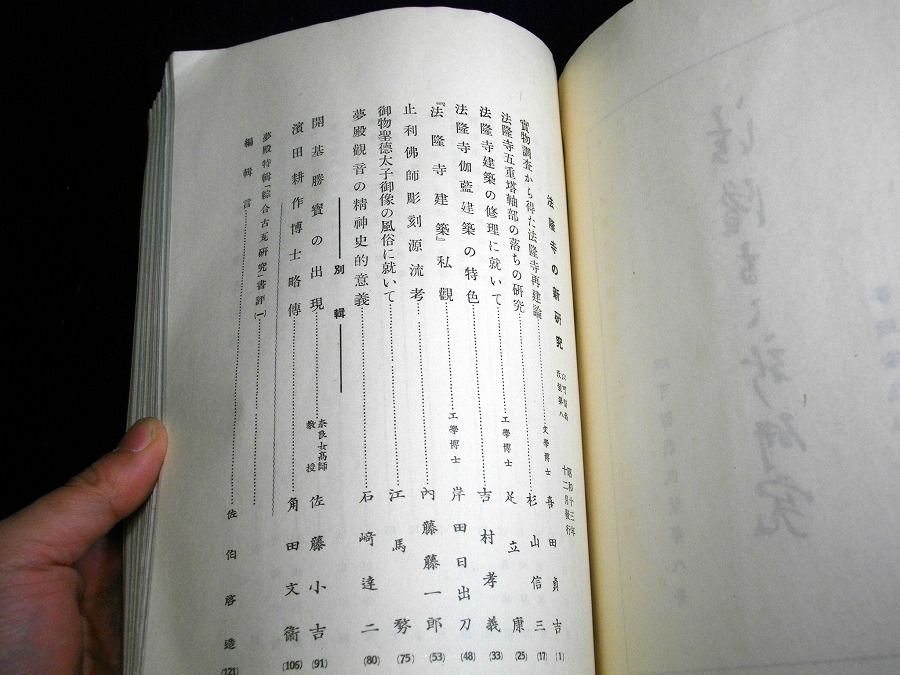 法隆寺の新研究 昭和十三年十二月發行
實物調査から得た法隆寺再建論 文學博士 喜田貞吉 (1)
法隆寺五重塔軸部の落ちの研究 杉山信三 (17)
法隆寺建築の修理に就いて 工學博士 足立康 (25)
法隆寺伽藍建築の特色 吉村孝義 (33)
『法隆寺建築』私觀 工學博士 岸田日出刀 (48)
止利佛師彫刻源流考 內藤藤一郎 (53)
御物聖德太子御像の風俗に就いて 江馬務 (75)
夢殿觀音の精神史的意義 石崎達二 (80)
別輯
開基勝寶の出現 奈良女高師教授 佐藤小吉 (91)
濱田耕作博士略傳 角田文衞 (106)
夢殿特輯「綜合古瓦研究」書評(一)
編輯言 佐伯啓造 (121)